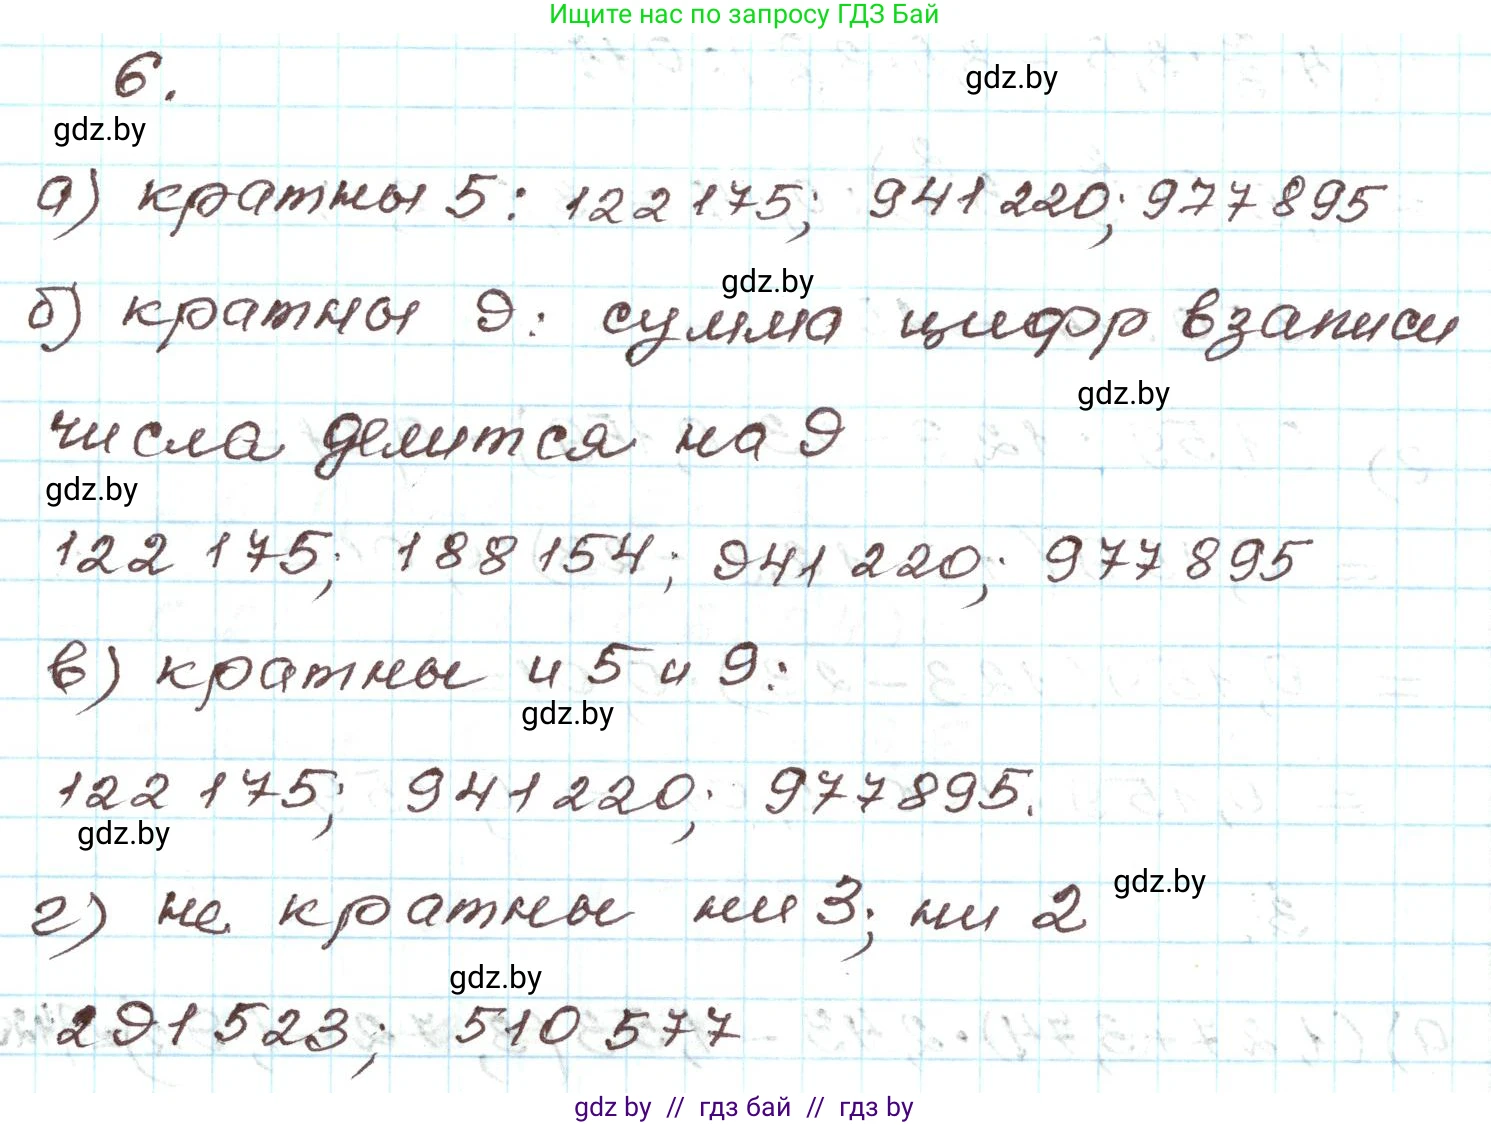 Ищите нас по запросу ГДЗ Бай
6.
gdz.by
gdz.by
а) кратны 5: 122 175; 941 220; 977 895
gdz.by
б) кратны 9: сумма цифр в записи
gdz.by
числа делится на 9
gdz.by
122 175; 188 154; 941 220; 977 895
в) кратны и 5 и 9:
gdz.by
122 175; 941 220; 977 895.
gdz.by
г) не кратны ни 3; ни 2
gdz.by
gdz.by
291 523; 510 577
gdz by // гдз бай // гдз by